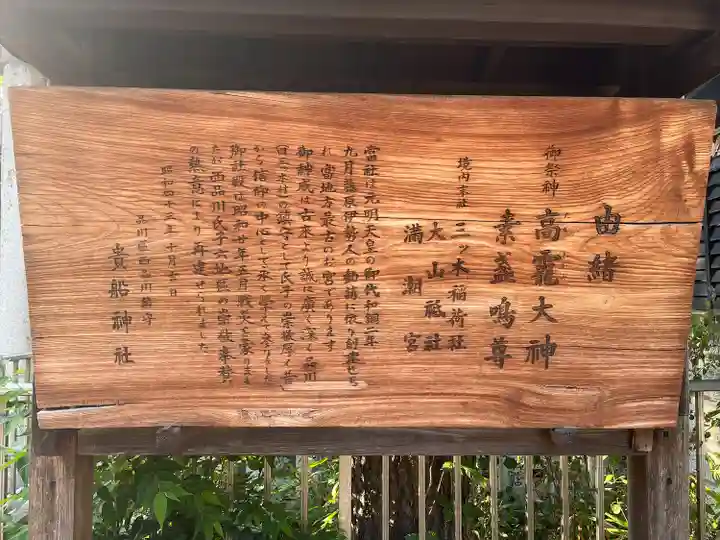 由緒
御祭神 高龗大神
素盞鳴尊
境内末社 三ッ木稲荷社
大山祗社
満潮宮
當社は元明天皇の御代和銅二年
九月藤原伊勢人の勧請に依り創建せら
れ當地方最古のお宮であります
御神威は古来より誠に廣く深く品川
曰三木村の鎮守として氏子の崇敬厚く昔
から信仰の中心として永く栄えて来ました
御社殿は昭和廿年五月戦災を蒙りまし
たが西品川氏子六地區の崇敬奉賛
の熱意により再建せられました
昭和四十三年十月吉日
品川區西品川鎮守
貴船神社